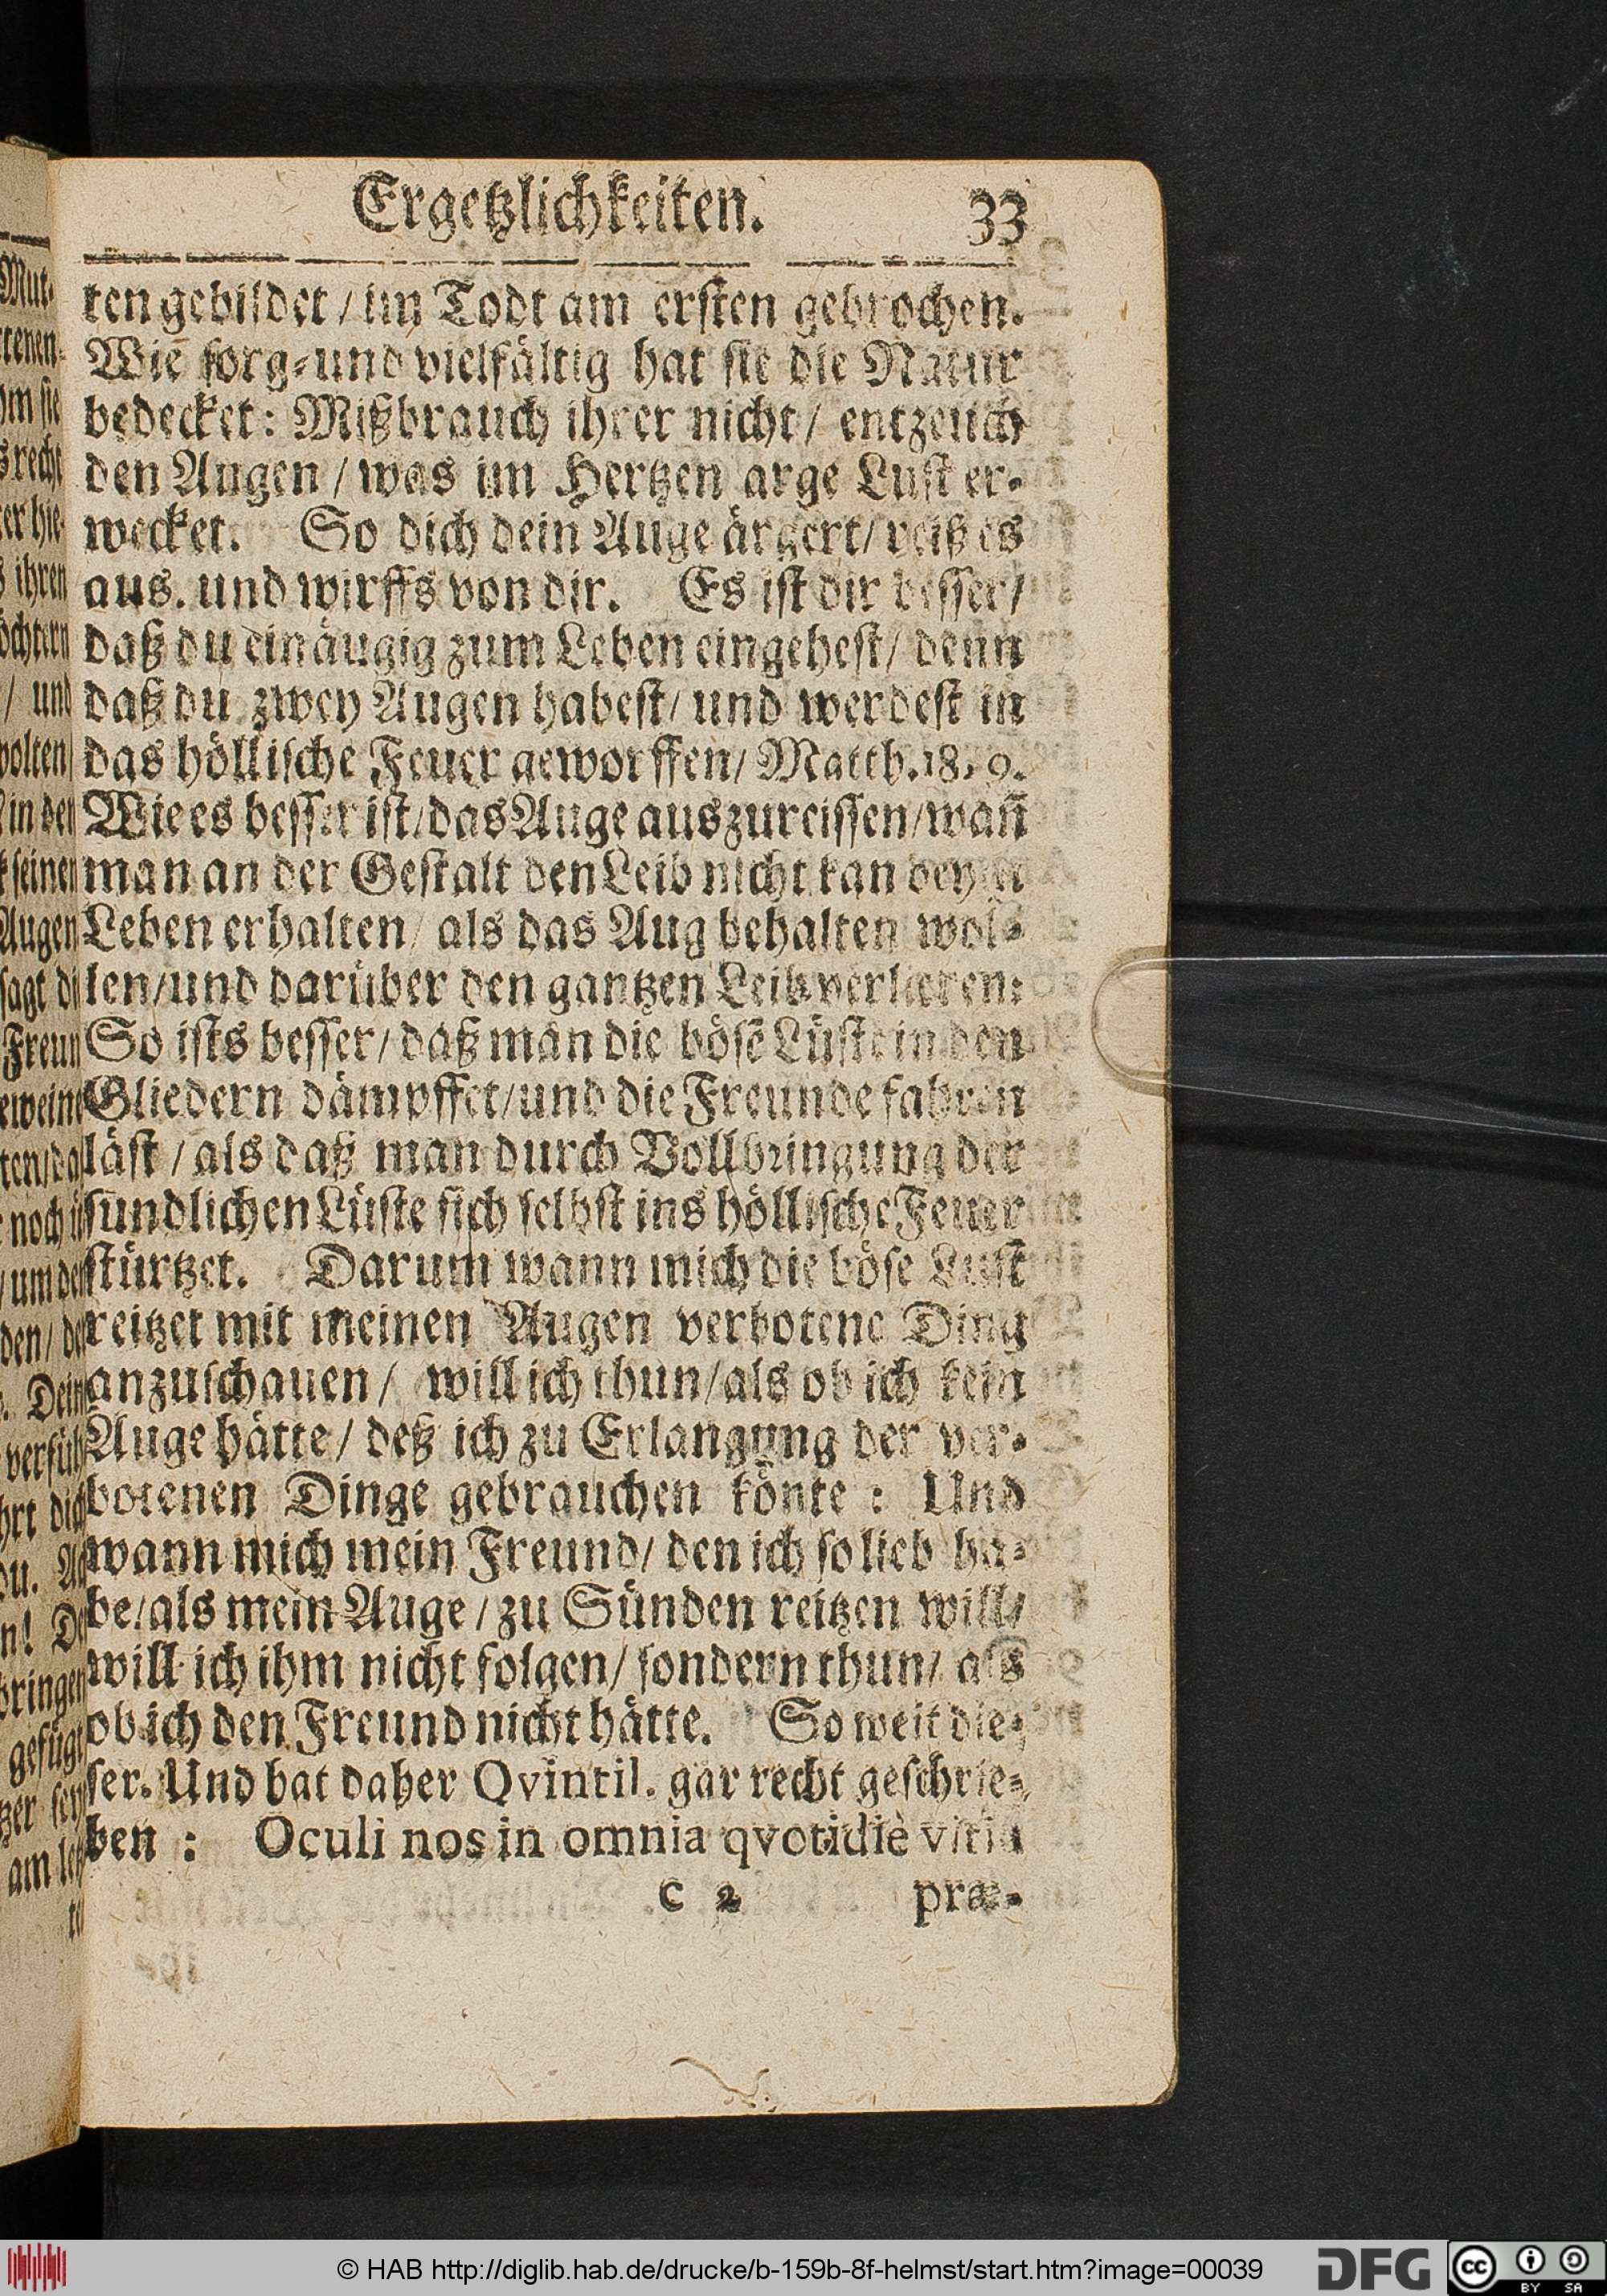 Ergetzlichkeiten. 33
ten gebildet / im Todt am ersten gebrochen.
Wie sorg-und vielfältig hat sie die Natur
bedecket: Mißbrauch ihrer nicht / entzeuch
den Augen / was im Hertzen arge Lust er-
wecket. So dich dein Auge ärgert / reiß es
aus. und wirffs von dir. Es ist dir besser /
daß du einäugig zum Leben eingehest / denn
daß du zwey Augen habest / und werdest in
das höllische Feuer geworffen / Matth. 18, 9.
Wie es besser ist / das Auge auszureissen / wañ
man an der Gestalt den Leib nicht kan beym
Leben erhalten / als das Aug behalten wol-
len / und darüber den gantzen Leib verlieren:
So ists besser / daß man die böse Lüste in den
Gliedern dämpffet / und die Freunde fahren
läst / als daß man durch Vollbringung der
sündlichen Lüste sich selbst ins höllische Feuer
stürtzet. Darum wann mich die böse Lust
reitzet mit meinen Augen verbotene Ding
anzuschauen / will ich thun / als ob ich kein
Auge hätte / deß ich zu Erlangung der ver-
botenen Dinge gebrauchen könte : Und
wann mich mein Freund / den ich so lieb ha-
be / als mein Auge / zu Sünden reitzen will /
will ich ihm nicht folgen / sondern thun / als
ob ich den Freund nicht hätte. So weit die-
ser. Und hat daher Qvintil. gar recht geschrie-
ben : Oculi nos in omnia qvotidiè vitia
C 2 præ-
© HAB http://diglib.hab.de/drucke/b-159b-8f-helmst/start.htm?image=00039
DFG
cc BY SA